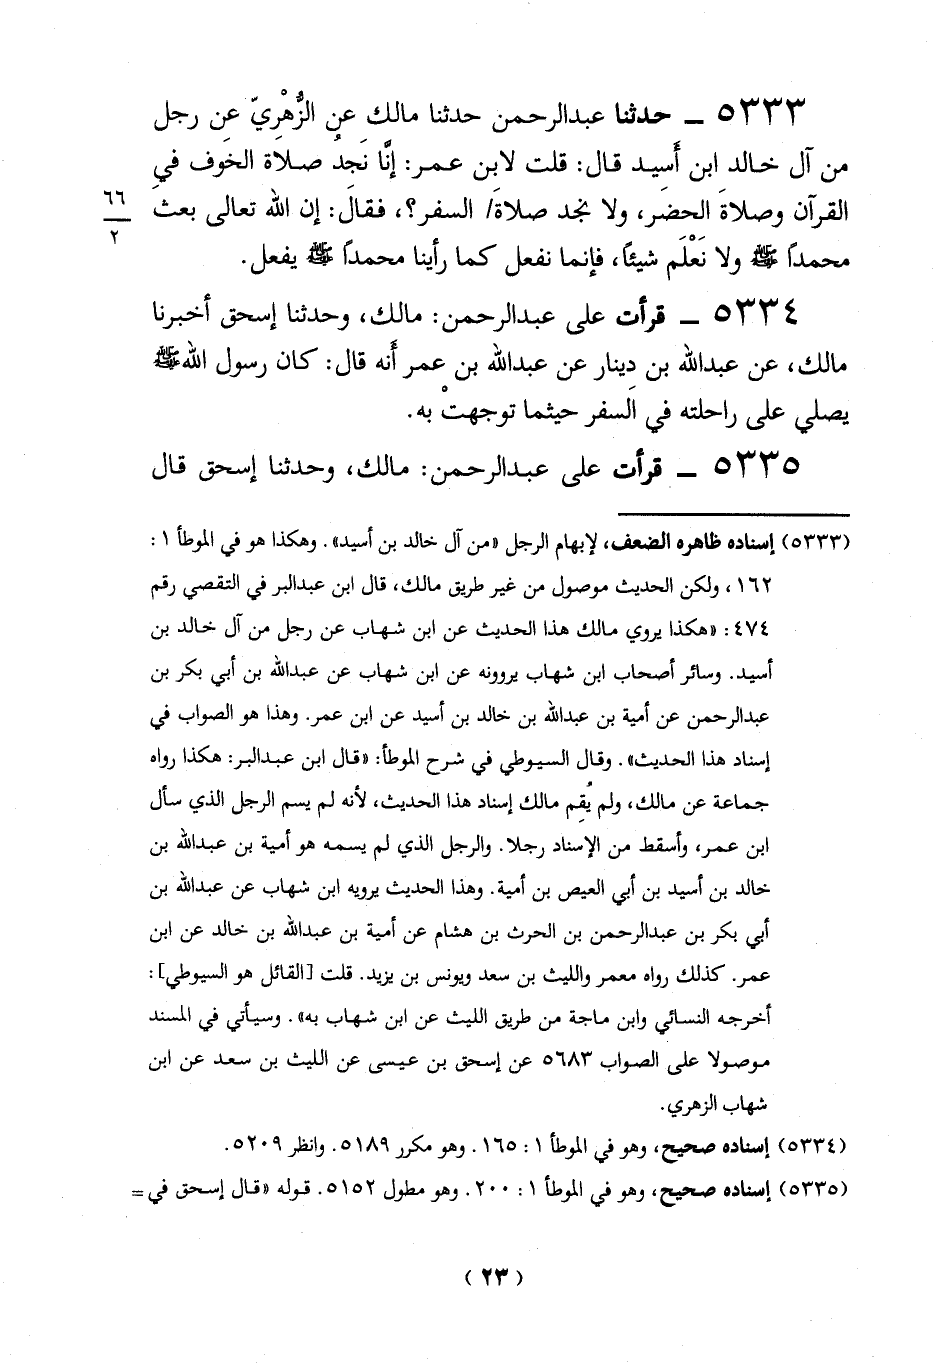 ٥٣٣٣ ــ حدثنا عبدالرحمن حدثنا مالك عن الزُّهْرِيّ عن رجل
من آل خالد ابن أَسِيد قال: قلت لابن عمر: إنَّا نَجِدُ صلاة الخوف في
القرآن وصلاةَ الحضر، ولا نجد صلاة/ السفر؟، فقال: إن الله تعالى بعث
٦٦
٢
محمداً ﷺ ولا نَعْلَم شيئاً، فإنما نفعل كما رأينا محمداً ﷺ يفعل.
٥٣٣٤ ــ قرأت على عبدالرحمن: مالك، وحدثنا إسحق أخبرنا
مالك، عن عبدالله بن دِينار عن عبدالله بن عمر أنه قال: كان رسول الله ﷺ
يصلي على راحلته في السفر حيثما توجهتْ به.
٥٣٣٥ ــ قرأت على عبدالرحمن: مالك، وحدثنا إسحق قال
(٥٣٣٣) إسناده ظاهره الضعف، لإبهام الرجل «من آل خالد بن أسيد». وهكذا هو في الموطأ ١ :
١٦٢، ولكن الحديث موصول من غير طريق مالك، قال ابن عبدالبر في التقصي رقم
٤٧٤: «هكذا يروي مالك هذا الحديث عن ابن شهاب عن رجل من آل خالد بن
أسيد. وسائر أصحاب ابن شهاب يروونه عن ابن شهاب عن عبدالله بن أبي بكر بن
عبدالرحمن عن أمية بن عبدالله بن خالد بن أسيد عن ابن عمر. وهذا هو الصواب في
إسناد هذا الحديث». وقال السيوطي في شرح الموطأ: «قال ابن عبدالبر: هكذا رواه
جماعة عن مالك، ولم يُقِم مالك إسناد هذا الحديث، لأنه لم يسم الرجل الذي سأل
ابن عمر، وأسقط من الإسناد رجلا. والرجل الذي لم يسمه هو أمية بن عبدالله بن
خالد بن أسيد بن أبي العيص بن أمية. وهذا الحديث يرويه ابن شهاب عن عبدالله بن
أبي بكر بن عبدالرحمن بن الحرث بن هشام عن أمية بن عبدالله بن خالد عن ابن
عمر. كذلك رواه معمر والليث بن سعد ويونس بن يزيد. قلت [القائل هو السيوطي]:
أخرجه النسائي وابن ماجة من طريق الليث عن ابن شهاب به». وسيأتي في المسند
موصولا على الصواب ٥٦٨٣ عن إسحق بن عيسى عن الليث بن سعد عن ابن
شهاب الزهري.
(٥٣٣٤) إسناده صحيح، وهو في الموطأ ١ : ١٦٥. وهو مكرر ٥١٨٩. وانظر ٥٢٠٩.
(٥٣٣٥) إسناده صحيح، وهو في الموطأ ١ : ٢٠٠. وهو مطول ٥١٥٢. قوله «قال إسحق في =
(٢٣)